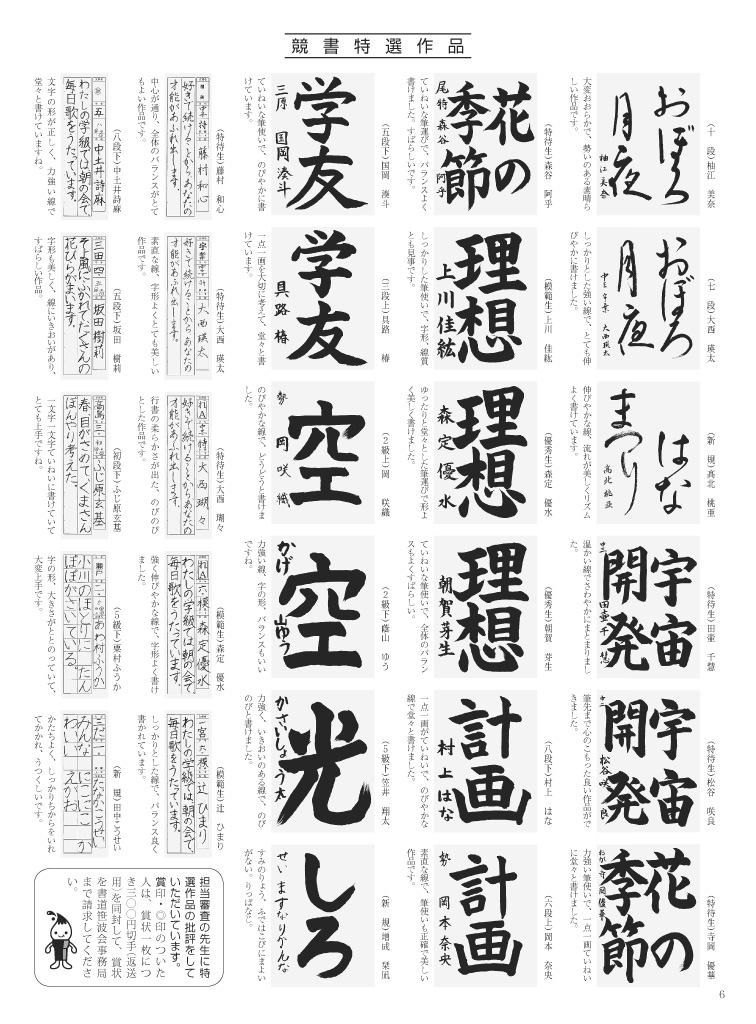 競書特選作品
(十 段)柚江 美奈
おぼろ
月夜
柚江美奈
大変おおらかで、勢いのある素晴らしい作品です。
(七 段)大西 瑛太
おぼろ
月夜
大西瑛太
しっかりとした強い線で、とても伸びやかに書けました。
(新 規)髙北 桃亜
はな
まつり
高北桃亜
伸びやかな線、流れが美しくリズムよく書けています。
(特待生)田壷 千慧
宇宙
開発
田壷千慧
温かい線でさわやかにまとまりました。
(特待生)松谷 咲良
宇宙
開発
松谷咲良
筆先まで心のこもった良い作品ができました。
(特待生)寺岡 優華
花の
季節
力強い筆使いで、一点一画ていねいに堂々と書けました。
(特待生)森谷 阿乎
花の
季節
尾特 森谷 阿乎
ていねいな筆運びで、バランスよく書けました。すばらしいです。
(模範生)上川 佳紘
理想
上川佳紘
しっかりした筆使いで、字形、線質とも見事です。
(優秀生)森定 優水
理想
森定優水
ゆったりと堂々とした筆運びで形よく美しく書けました。
(優秀生)朝賀 芽生
理想
朝賀芽生
ていねいな筆使いで、全体のバランスもよくすばらしい。
(八段下)村上 はな
計画
村上はな
一点一画がていねいで、のびやかな線で堂々と書けました。
(六段上)岡本 奈央
計画
勢 岡本奈央
素直な線で、筆使いも正確で美しい作品です。
(五段下)国岡 湊斗
学友
三原 国岡湊斗
ていねいな筆使いで、のびやかに書けています。
(三段上)具路 椿
学友
具路 椿
一点一画を大切に考えて、堂々と書けています。
(2級上)岡 咲織
空
勢 岡 咲織
のびやかな線で、どうどうと書けました。
(2級下)蔭山 ゆう
空
かげ山ゆう
力強い線、字の形、バランスもいいですね。
(5級下)笠井 翔太
光
かさいしょう太
力強く、いきおいのある線で、のびのびと書けました。
(新 規)増成 栞凪
しろ
せい ますなりかんな
すみのりょう、ふではこびにまよいがない。りっぱなじ。
(特待生)藤村 和心
藤村和心
好きで続けることからあなたの
才能があふれ出します。
中心が通り、全体のバランスがとてもよい作品です。
(特待生)大西 瑛太
大西瑛太
好きで続けることからあなたの
才能があふれ出します。
素直な線、字形よくとても美しい作品です。
(特待生)大西 瑚々
大西瑚々
好きで続けることからあなたの
才能があふれ出します。
行書の柔らかさが出た、のびのびとした作品です。
(模範生)森定 優水
森定優水
わたしの学級では朝の会で、
毎日歌をうたっています。
強く伸びやかな線で、字形よく書けました。
(模範生)辻 ひまり
辻ひまり
わたしの学級では、朝の会で、
毎日歌をうたっています。
しっかりとした線で、バランス良く書かれています。
(八段下)中土井詩麻
中土井詩麻
わたしの学級では朝の会で、
毎日歌をうたっています。
文字の形が正しく、力強い線で堂々と書けていますね。
(五段下)坂田 樹莉
坂田樹莉
そよ風にふかれてたくさんの
花びらがまいます。
字形も美しく、線にいきおいがあり、すばらしい作品。
(初段下)ふじ原玄基
ふじ原玄基
春、目がさめて、くまさん
ぼんやり考えた。
一文字一文字ていねいに書けていてとても上手ですね。
(5級下)粟村ふうか
あわ村ふうか
小川のほとりに、たん
ぽぽがさいている。
字の形、大きさがととのっていて、大変上手です。
(新 規)田中こうせい
たなかこうせい
みんな にこにこ
かわいい えがお
かたちよく、しっかりちからをいれてかかれ、うつくしいです。
担当審査の先生に特
選作品の批評をして
いただいています。
賞印・◎印のついた
人は、賞状一枚につ
き三〇〇円切手(返送
用)を同封して、賞状
を書道笹波会事務局
まで請求してくださ
い。
6